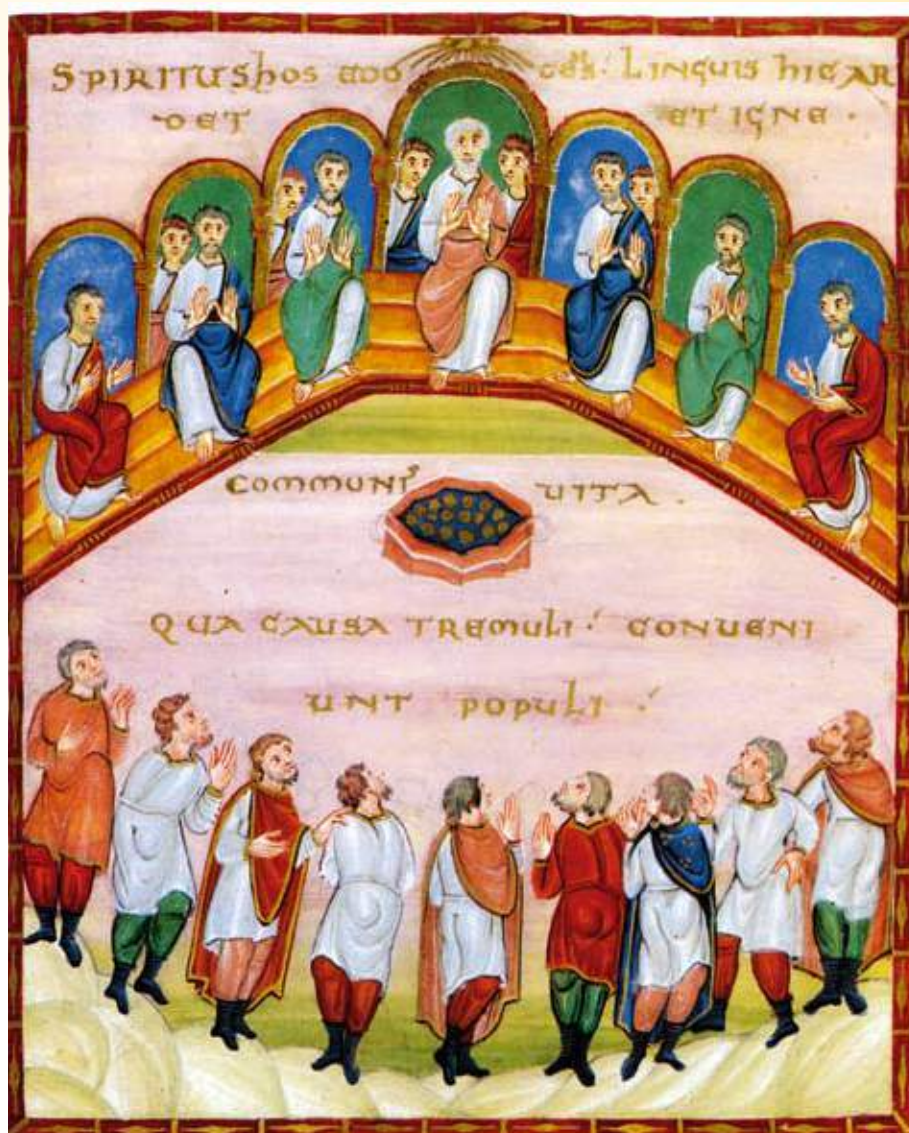 SPIRITUS hOS EDO LINGUIS HIC AR
DET ET IGNE .
COMMUNI⁹ UITA .
QUA CAUSA TREMULI. CONUENI
UNT POPULI .